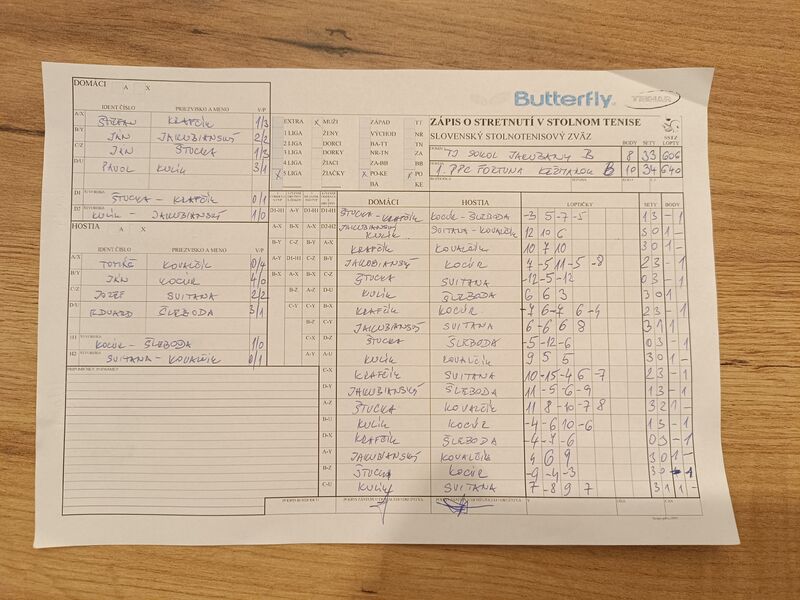 Butterfly
ZÁPIS O STRETNUTÍ V STOLNOM TENISE
SLOVENSKÝ STOLNOTENISOVÝ ZVÄZ
SSTZ
BODY SETY LOPTY
TJ SOKOL JAKUBANY B 8 33 606
1. PPC FORTUNA KEŽMAROK B 10 34 640
DOMÁCI A X
IDENT ČÍSLO PRIEZVISKO A MENO V/P
A/X ŠTEFAN KRAFČÍK 1/3
B/Y JÁN JAKUBIANSKÝ 2/2
C/Z JÁN ŠTUCKA 1/3
D/U PAVOL KULÍK 3/1
D1 ŠTUCKA - KRAFČÍK 0/1
D2 KULÍK - JAKUBIANSKÝ 1/0
HOSTIA A X
IDENT ČÍSLO PRIEZVISKO A MENO V/P
A/X TOMÁŠ KOVALČÍK 0/4
B/Y JÁN KOCÚR 4/0
C/Z JOZEF SVITANA 2/2
D/U EDUARD ŠLEBODA 3/1
H1 KOCÚR - ŠLEBODA 1/0
H2 SVITANA - KOVALČÍK 0/1
EXTRA X MUŽI ZÁPAD TT
1 LIGA ŽENY VÝCHOD NR
2 LIGA DORCI BA-TT TN
3 LIGA DORKY NR-TN ZA
4 LIGA ŽIACI ZA-BB BB
X 5 LIGA ŽIAČKY X PO-KE X PO
BA KE
DOMÁCI HOSTIA LOPTIČKY SETY BODY
ŠTUCKA - KRAFČÍK KOCÚR - ŠLEBODA -3 5 -7 -5 1 3 - 1
JAKUBIANSKÝ KULÍK SVITANA - KOVALČÍK 12 10 6 3 0 1 -
KRAFČÍK KOVALČÍK 10 7 10 3 0 1 -
JAKUBIANSKÝ KOCÚR 7 -5 11 -5 -8 2 3 - 1
ŠTUCKA SVITANA -12 -5 -12 0 3 - 1
KULÍK ŠLEBODA 6 6 3 3 0 1
KRAFČÍK KOCÚR -7 6 -7 6 -4 2 3 - 1
JAKUBIANSKÝ SVITANA 6 -6 6 8 3 1 1
ŠTUCKA ŠLEBODA -5 -12 -6 0 3 - 1
KULÍK KOVALČÍK 9 5 5 3 0 1 -
KRAFČÍK SVITANA 10 -15 -4 6 -7 2 3 - 1
JAKUBIANSKÝ ŠLEBODA 11 -5 -6 -9 1 3 - 1
ŠTUCKA KOVALČÍK 11 8 -10 -7 8 3 2 1 -
KULÍK KOCÚR -4 -6 10 -6 1 3 - 1
KRAFČÍK ŠLEBODA -4 -7 -6 0 3 - 1
JAKUBIANSKÝ KOVALČÍK 4 6 9 3 0 1 -
ŠTUCKA KOCÚR -9 -4 -3 3 0 1
KULÍK SVITANA 7 -8 9 7 3 1 1 -
PRIPOMIENKY, POZNÁMKY